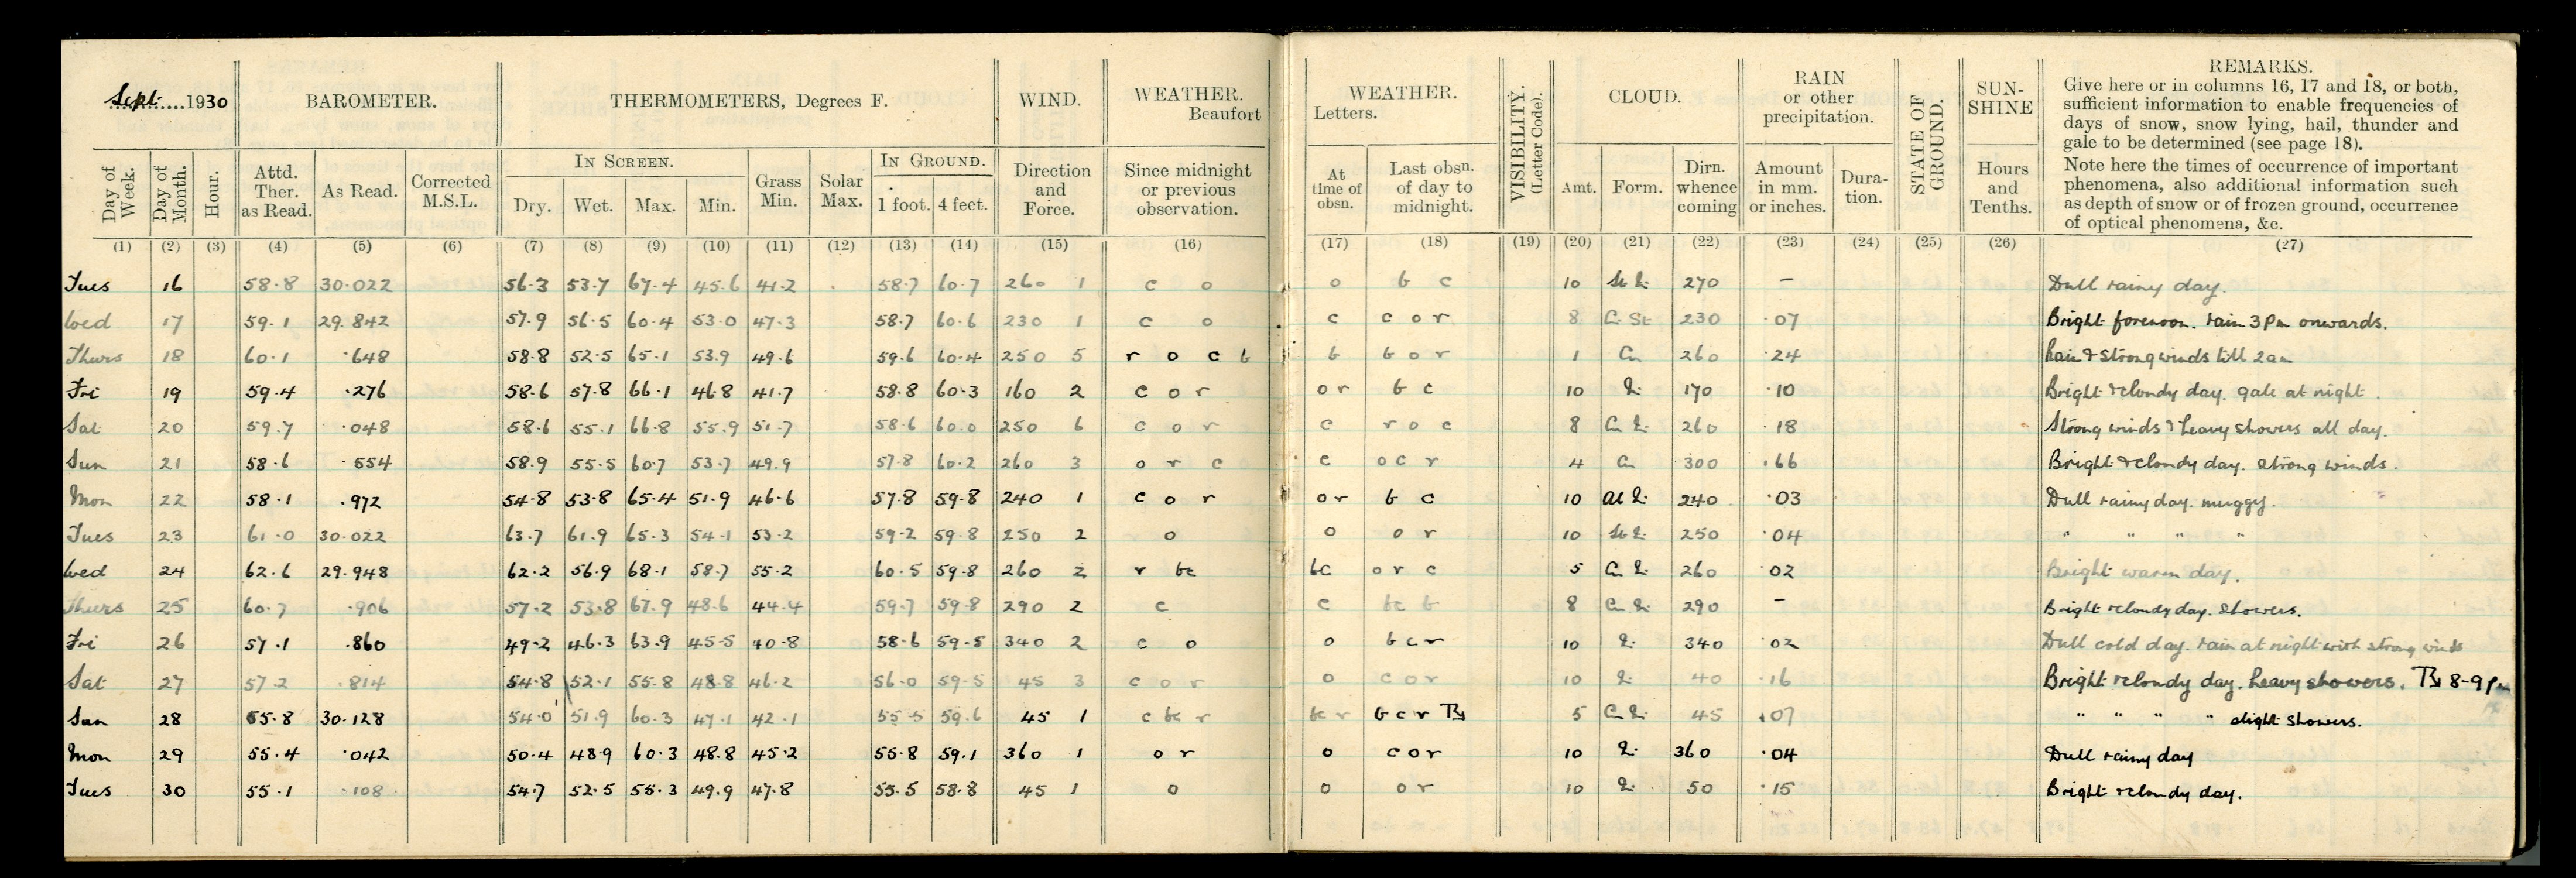 Sept. 1930
BAROMETER.
THERMOMETERS, Degrees F.
WIND.
WEATHER.
Beaufort
WEATHER.
Letters.
VISIBILITY.
(Letter Code).
CLOUD.
RAIN
or other
precipitation.
STATE OF
GROUND.
SUN-
SHINE
REMARKS.
Give here or in columns 16, 17 and 18, or both,
sufficient information to enable frequencies of
days of snow, snow lying, hail, thunder and
gale to be determined (see page 18).
Note here the times of occurrence of important
phenomena, also additional information such
as depth of snow or of frozen ground, occurrence
of optical phenomena, &c.
Day of Week.
Day of Month.
Hour.
Attd. Ther. as Read.
As Read.
Corrected M.S.L.
IN SCREEN.
Dry. Wet. Max. Min.
Grass Min.
Solar Max.
IN GROUND.
1 foot. 4 feet.
Direction and Force.
Since midnight or previous observation.
At time of obsn.
Last obsn. of day to midnight.
Amt. Form. Dirn. whence coming
Amount in mm. or inches.
Duration.
Hours and Tenths.
(1) (2) (3) (4) (5) (6) (7) (8) (9) (10) (11) (12) (13) (14) (15) (16) (17) (18) (19) (20) (21) (22) (23) (24) (25) (26) (27)
Tues 16 58.8 30.022 56.3 53.7 67.4 45.6 41.2 58.7 60.7 260 1 c o o b c 10 270 – Dull rainy day.
Wed 17 59.1 29.842 57.9 56.5 60.4 53.0 47.3 58.7 60.6 230 1 c o c c o r 8 230 .07 Bright forenoon. rain 3 Pm onwards.
Thurs 18 60.1 .648 58.8 52.5 65.1 53.9 49.6 59.6 60.4 250 5 r o c b b b o r 1 Cu 260 .24 Rain & strong winds till 2am
Fri 19 59.4 .276 58.6 57.8 66.1 46.8 41.7 58.8 60.3 160 2 c o r o r b c 10 170 .10 Bright & cloudy day. gale at night.
Sat 20 59.7 .048 58.6 55.1 66.8 55.9 51.7 58.6 60.0 250 6 c o r c r o c 8 260 .18 Strong winds & heavy showers all day.
Sun 21 58.6 .554 58.9 55.5 60.7 53.7 49.9 57.8 60.2 260 3 o r c c o c r 4 Cu 300 .66 Bright & cloudy day. strong winds.
Mon 22 58.1 .972 54.8 53.8 65.4 51.9 46.6 57.8 59.8 240 1 c o r o r b c 10 240 .03 Dull rainy day. muggy.
Tues 23 61.0 30.022 63.7 61.9 65.3 54.1 53.2 59.2 59.8 250 2 o o o r 10 250 .04 " " " "
Wed 24 62.6 29.948 62.2 56.9 68.1 58.7 55.2 60.5 59.8 260 2 r bc bc o r c 5 260 .02 Bright warm day.
Thurs 25 60.7 .906 57.2 53.8 67.9 48.6 44.4 59.7 59.8 290 2 c c bc b 8 290 – Bright & cloudy day. showers.
Fri 26 57.1 .860 49.2 46.3 63.9 45.5 40.8 58.6 59.5 340 2 c o o b c r 10 340 .02 Dull cold day. rain at night with strong winds
Sat 27 57.2 .814 54.8 52.1 55.8 48.8 46.2 56.0 59.5 45 3 c o r o c o r 10 40 .16 Bright & cloudy day. heavy showers. 8-9 pm
Sun 28 55.8 30.128 54.0 51.9 60.3 47.1 42.1 55.5 59.6 45 1 c bc r bc r b c r 5 45 .07 " " " " slight showers.
Mon 29 55.4 .042 50.4 48.9 60.3 48.8 45.2 55.8 59.1 360 1 o r o c o r 10 360 .04 Dull rainy day
Tues 30 55.1 .108 54.7 52.5 55.3 49.9 47.8 55.5 58.8 45 1 o o o r 10 50 .15 Bright & cloudy day.